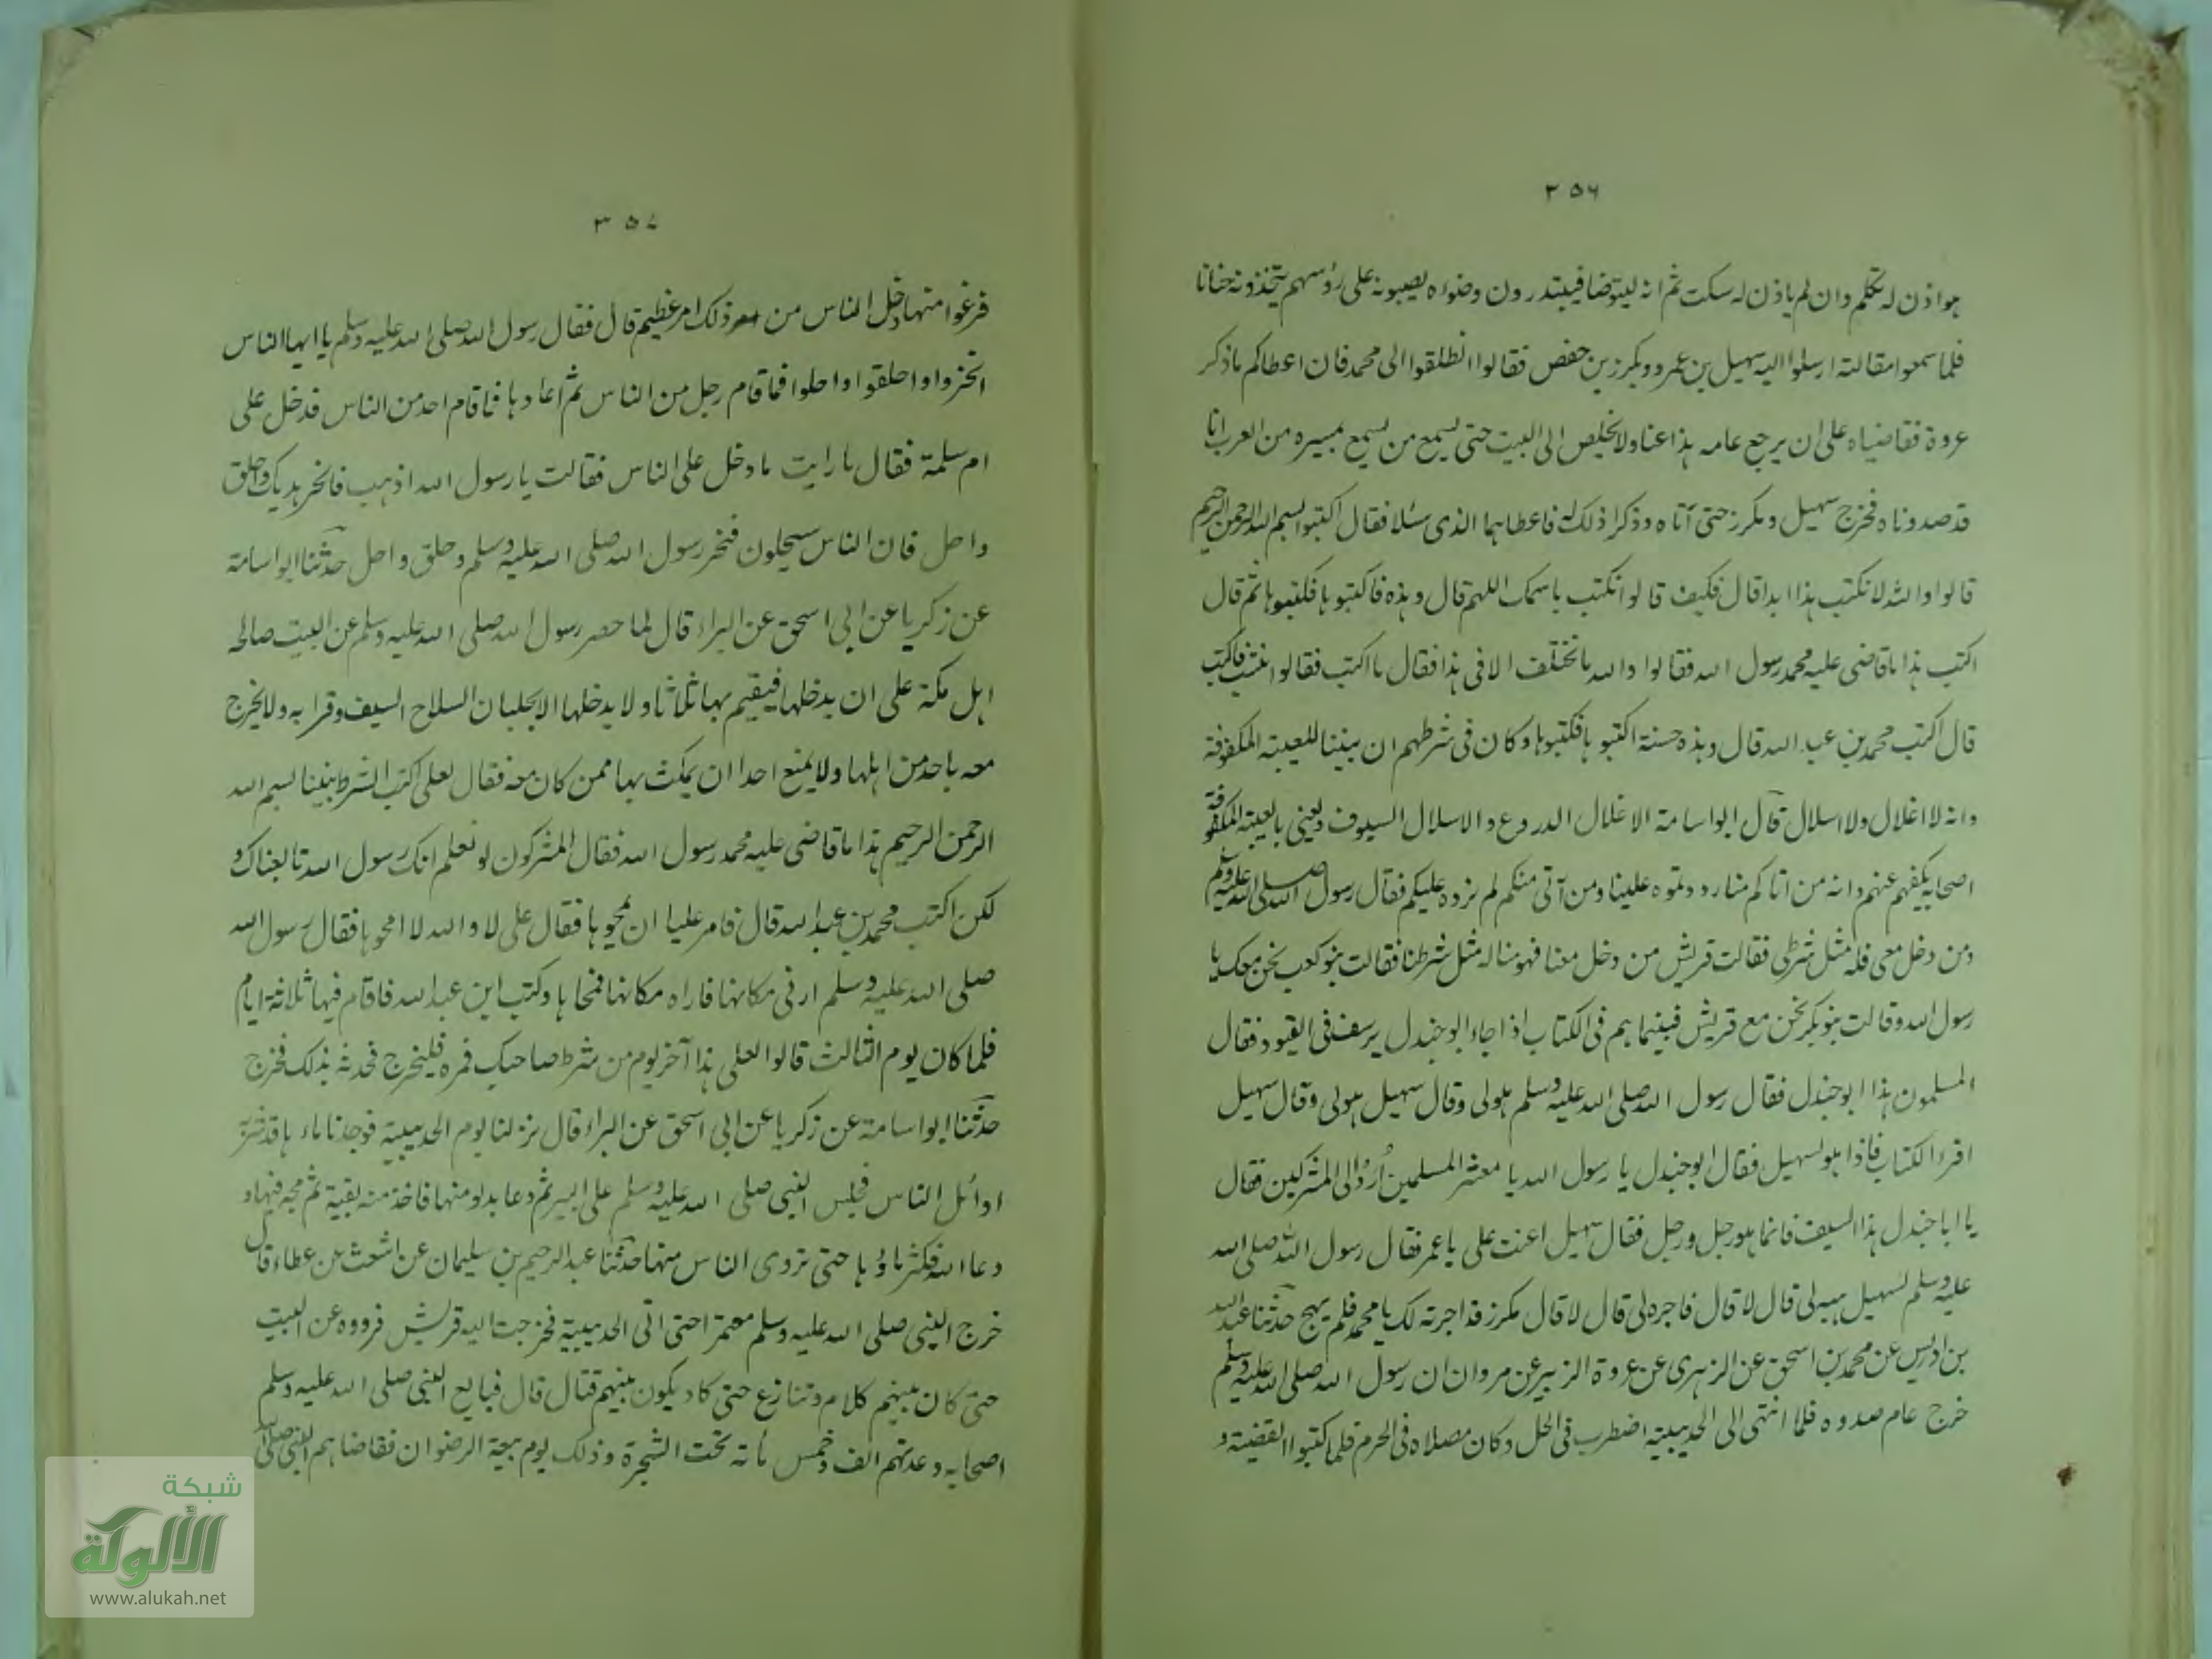 ٣٥٦
هو اذن له تكلم وان لم ياذن له سكت ثم انه ليتوضا فيبتدرون وضواه يصبونه على رؤسهم يتخذونه حنانا
فلما سمعوا مقالته ارسلوا اليه سهيل بن عمرو ومكرز بن حفص فقالوا انطلقوا الى محمد فان اعطاكم ما ذكر
عروة فقاضياه على ان يرجع عامه هذا عنا ولا يخلص الى البيت حتى يسمع من يسمع بمسيره من العرب انا
قد صددناه فخرج سهيل ومكرز حتى آتاه وذكرا ذلك له فاعطاهما الذى سئلا فقال اكتبوا بسم الله الرحمن الرحيم
قالوا والله لا نكتب هذا ابدا قال فكيف قالوا نكتب باسمك اللهم قال وهذه فاكتبوها فكتبوها ثم قال
اكتب هذا ما قاضى عليه محمد رسول الله فقالوا والله ما نختلف الا فى هذا فقال ما اكتب فقالوا انتسب فاكتب
قال اكتب محمد بن عبد الله قال وهذه حسنة اكتبوها فكتبوها وكان فى شرطهم ان بيننا للعيبة المكفوفة
وانه لا اغلال ولا اسلال قال ابو اسامة الاغلال الدروع والاسلال السيوف ويعنى بالعيبة المكفوفة
اصحابه يكفهم عنهم وانه من اتاكم منا رددتموه علينا ومن آتى منكم لم نرده عليكم فقال رسول الله صلى الله عليه وسلم
ومن دخل معى فله مثل شرطى فقالت قريش من دخل معنا فهو منا له مثل شرطنا فقالت بنو كعب نحن معك يا
رسول الله وقالت بنو بكر نحن مع قريش فبينما هم فى الكتاب اذا جاء ابو جندل يرسف فى القيود فقال
المسلمون هذا ابو جندل فقال رسول الله صلى الله عليه وسلم هو لى وقال سهيل هو لى وقال سهيل
اقرء الكتاب فاذا هو لسهيل فقال ابو جندل يا رسول الله يا معشر المسلمين أُرَدُّ الى المشركين فقال
يا ابا جندل هذا السيف فانما هو رجل ورجل فقال سهيل اعنت على يا عمر فقال رسول الله صلى الله
عليه وسلم لسهيل هبه لى قال لا قال فاجره لى قال لا قال مكرز قد اجرته لك يا محمد فلم يهج حدثنا عبد الله
بن ادريس عن محمد بن اسحق عن الزهرى عن عروة الزبير عن مروان ان رسول الله صلى الله عليه وسلم
خرج عام صدوه فلما انتهى الى الحديبية اضطرب فى الحل وكان مصلاه فى الحرم فلما كتبوا القضية و
٣٥٧
فرغوا منها دخل الناس من ذلك امر عظيم قال فقال رسول الله صلى الله عليه وسلم يا ايها الناس
انحروا واحلقوا واحلوا فما قام رجل من الناس ثم اعادها فما قام احد من الناس فدخل على
ام سلمة فقال ما رايت ما دخل على الناس فقالت يا رسول الله اذهب فانحر هديك واحلق
واحل فان الناس سيحلون فنحر رسول الله صلى الله عليه وسلم وحلق واحل حدثنا ابو اسامة
عن زكريا عن ابى اسحق عن البراء قال لما حصر رسول الله صلى الله عليه وسلم عن البيت صالحه
اهل مكة على ان يدخلها فيقيم بها ثلاثا ولا يدخلها الا بجلبان السلاح السيف وقرابه ولا يخرج
معه باحد من اهلها ولا يمنع احدا ان يمكث بها ممن كان معه فقال لعلى اكتب الشرط بيننا بسم الله
الرحمن الرحيم هذا ما قاضى عليه محمد رسول الله فقال المشركون لو نعلم انك رسول الله تابعناك و
لكن اكتب محمد بن عبد الله قال فامر عليا ان يمحوها فقال على لا والله لا امحوها فقال رسول الله
صلى الله عليه وسلم ارنى مكانها فاراه مكانها فمحاها وكتب ابن عبد الله فاقام فيها ثلاثة ايام
فلما كان يوم الثالث قالوا لعلى هذا آخر يوم من شرط صاحبك فمره فليخرج فحدثه بذلك فخرج
حدثنا ابو اسامة عن زكريا عن ابى اسحق عن البراء قال نزلنا يوم الحديبية فوجدنا ماءها قد شربه
اوائل الناس فجلس النبى صلى الله عليه وسلم على البير ثم دعا بدلو منها فاخذ منه بفيه ثم مجه فيها و
دعا الله فكثر ماؤها حتى تروى الناس منها حدثنا عبد الرحيم بن سليمان عن اشعث عن عطاء قال
خرج النبى صلى الله عليه وسلم معتمرا حتى اتى الحديبية فخرجت اليه قريش فردوه عن البيت
حتى كان بينهم كلام وتنازع حتى كاد يكون بينهم قتال قال فبايع النبى صلى الله عليه وسلم
اصحابه وعدتهم الف وخمس مأته تحت الشجرة وذلك يوم بيعة الرضوان فقاضاهم النبى صلى الله
شبكة
الألوكة
www.alukah.net